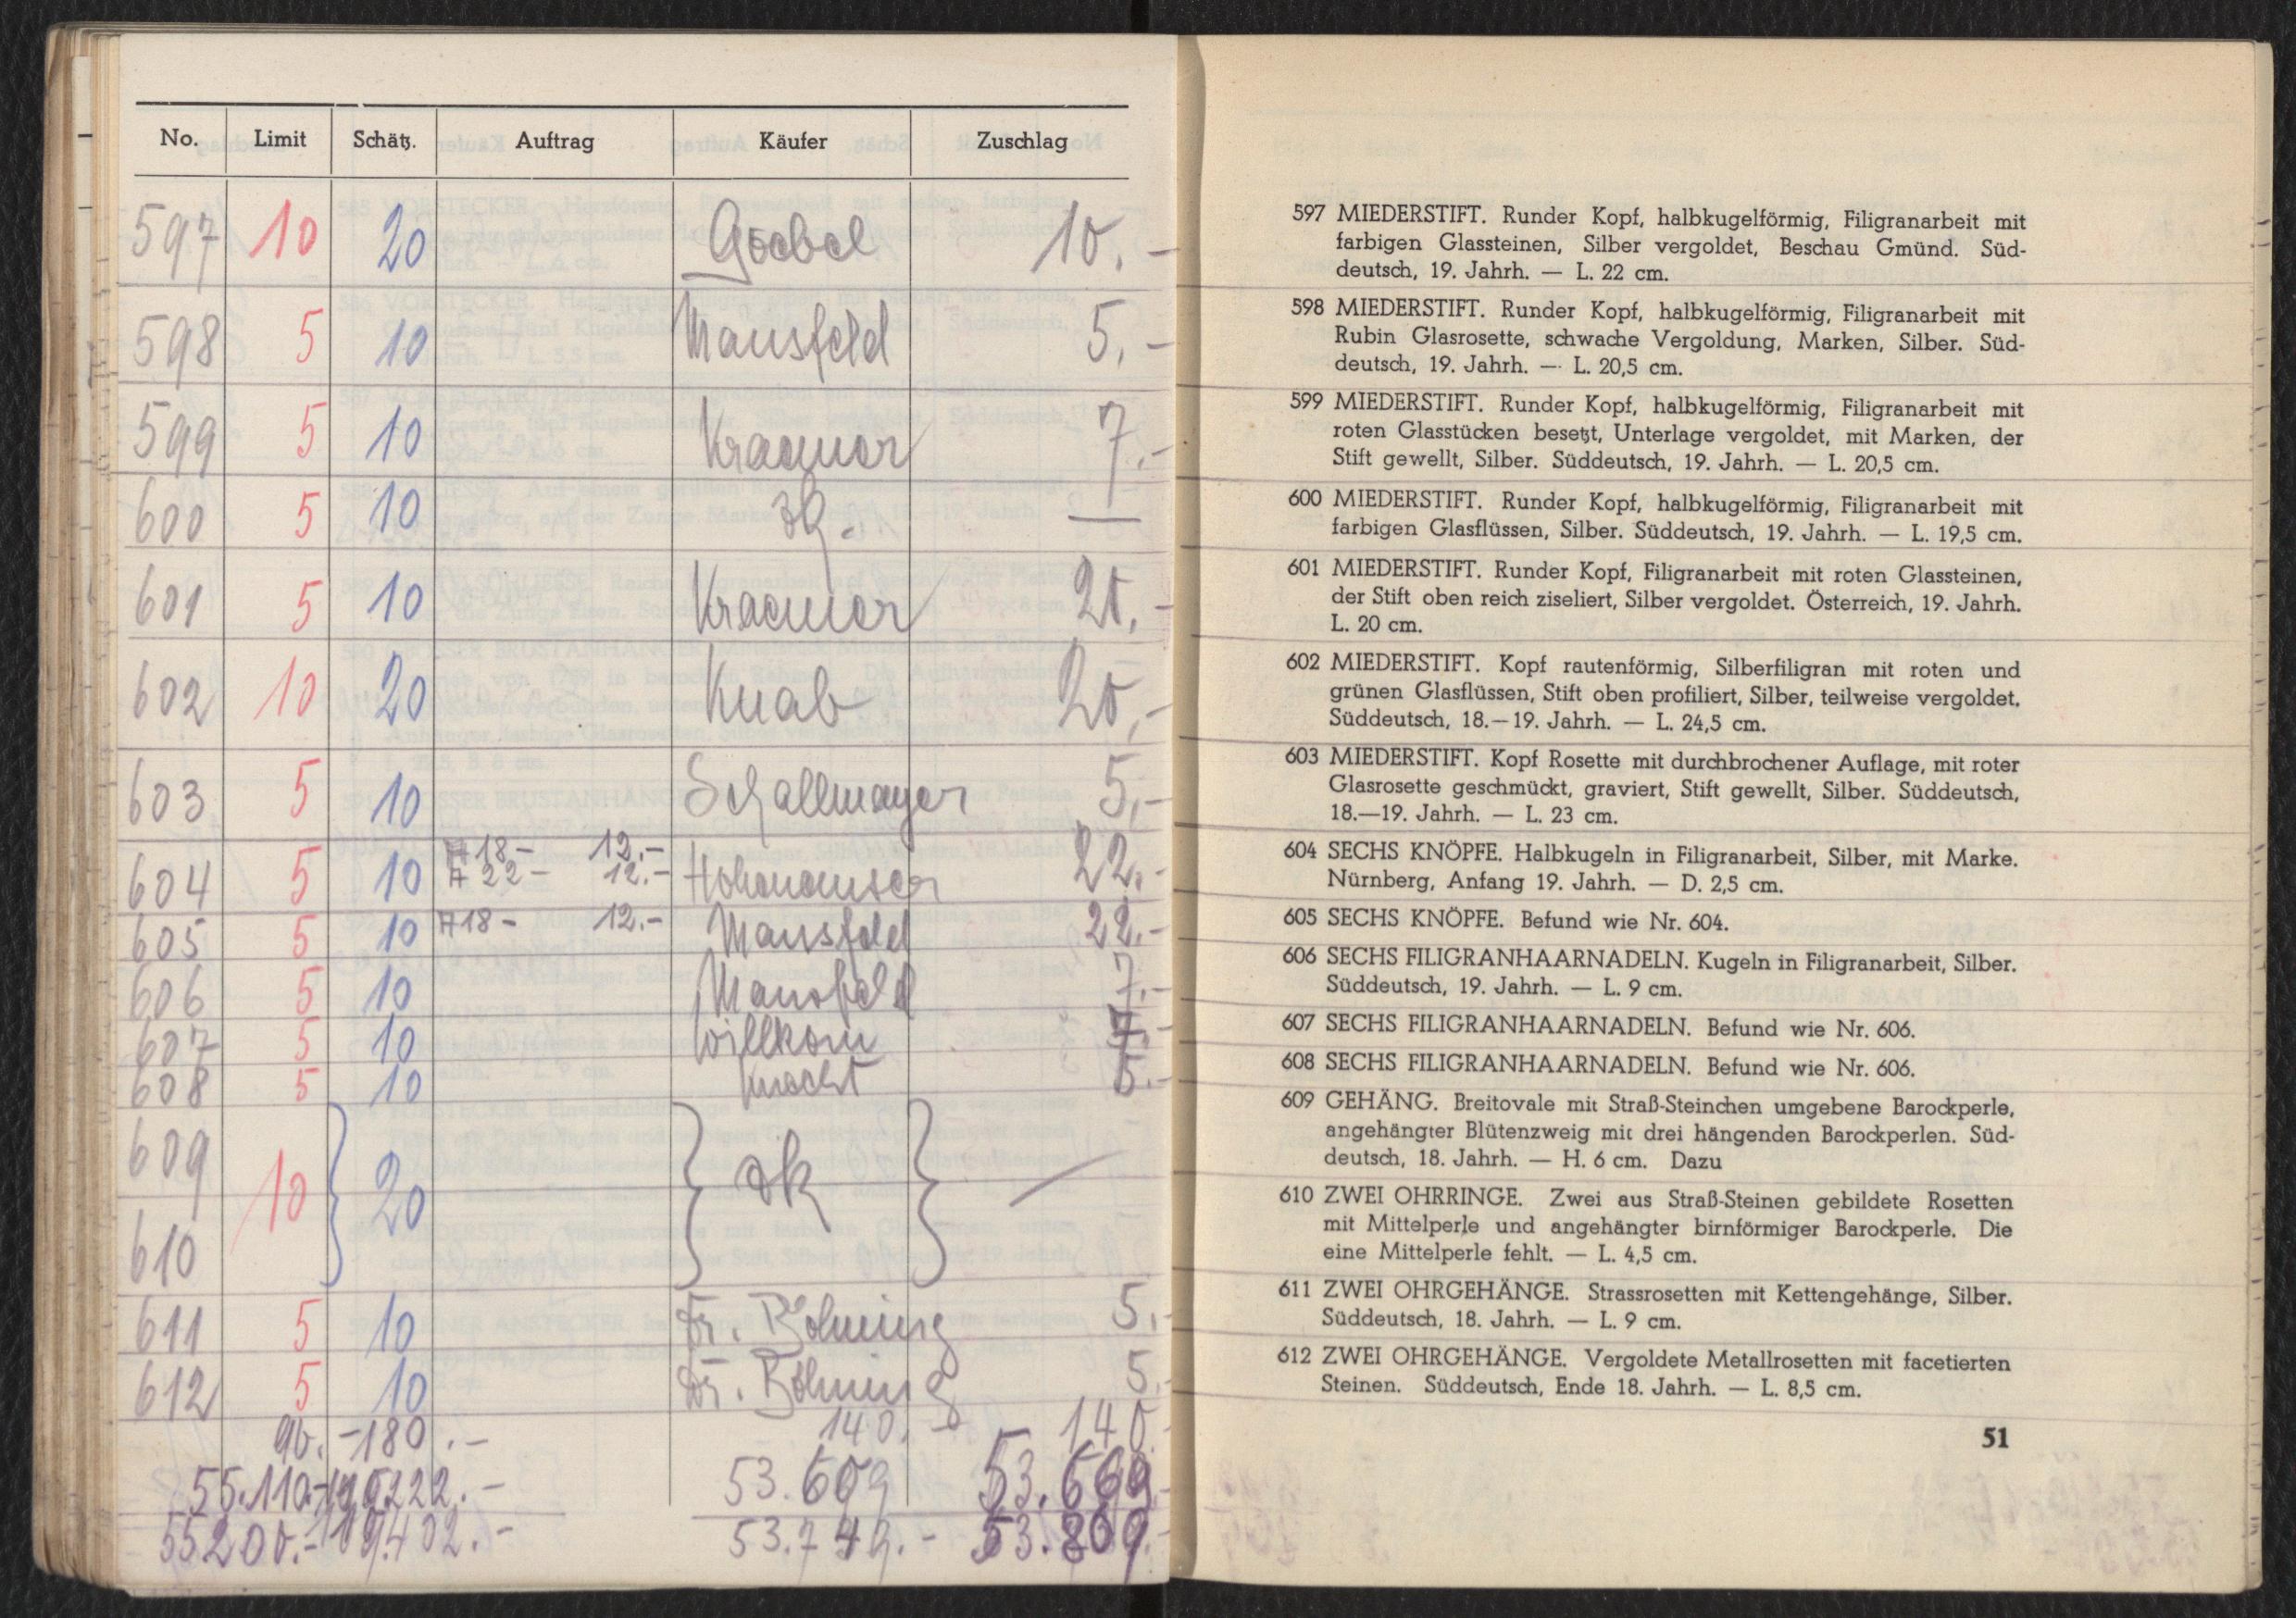 No. Limit Schätz. Auftrag Käufer Zuschlag
597 10 20 Goebel 10.-
598 5 10 Mansfeld 5.-
599 5 10 Kraemer 7.-
600 5 10 —
601 5 10 Kraemer 21.-
602 10 20 Knab 20.-
603 5 10 Schallmayer 5.-
604 5 10 18- 12.-
22- 12.- 22.-
605 5 10 18- 12.- Mansfeld 22.-
606 5 10 Mansfeld 7.-
607 5 10 Willkom
608 5 10 Knecht 5.-
609
10 } 20 } } —
610
611 5 10 Dr. Böhming 5.-
612 5 10 Dr. Böhming 5.-
90.- 180.- 140.- 140.
55.110.- 53.609 53.669.-
55200.- 109.402.- 53.749.- 53.809.-
597 MIEDERSTIFT. Runder Kopf, halbkugelförmig, Filigranarbeit mit
farbigen Glassteinen, Silber vergoldet, Beschau Gmünd. Süd-
deutsch, 19. Jahrh. — L. 22 cm.
598 MIEDERSTIFT. Runder Kopf, halbkugelförmig, Filigranarbeit mit
Rubin Glasrosette, schwache Vergoldung, Marken, Silber. Süd-
deutsch, 19. Jahrh. — L. 20,5 cm.
599 MIEDERSTIFT. Runder Kopf, halbkugelförmig, Filigranarbeit mit
roten Glasstücken besetzt, Unterlage vergoldet, mit Marken, der
Stift gewellt, Silber. Süddeutsch, 19. Jahrh. — L. 20,5 cm.
600 MIEDERSTIFT. Runder Kopf, halbkugelförmig, Filigranarbeit mit
farbigen Glasflüssen, Silber. Süddeutsch, 19. Jahrh. — L. 19,5 cm.
601 MIEDERSTIFT. Runder Kopf, Filigranarbeit mit roten Glassteinen,
der Stift oben reich ziseliert, Silber vergoldet. Österreich, 19. Jahrh.
L. 20 cm.
602 MIEDERSTIFT. Kopf rautenförmig, Silberfiligran mit roten und
grünen Glasflüssen, Stift oben profiliert, Silber, teilweise vergoldet.
Süddeutsch, 18.—19. Jahrh. — L. 24,5 cm.
603 MIEDERSTIFT. Kopf Rosette mit durchbrochener Auflage, mit roter
Glasrosette geschmückt, graviert, Stift gewellt, Silber. Süddeutsch,
18.—19. Jahrh. — L. 23 cm.
604 SECHS KNÖPFE. Halbkugeln in Filigranarbeit, Silber, mit Marke.
Nürnberg, Anfang 19. Jahrh. — D. 2,5 cm.
605 SECHS KNÖPFE. Befund wie Nr. 604.
606 SECHS FILIGRANHAARNADELN. Kugeln in Filigranarbeit, Silber.
Süddeutsch, 19. Jahrh. — L. 9 cm.
607 SECHS FILIGRANHAARNADELN. Befund wie Nr. 606.
608 SECHS FILIGRANHAARNADELN. Befund wie Nr. 606.
609 GEHÄNG. Breitovale mit Straß-Steinchen umgebene Barockperle,
angehängter Blütenzweig mit drei hängenden Barockperlen. Süd-
deutsch, 18. Jahrh. — H. 6 cm. Dazu
610 ZWEI OHRRINGE. Zwei aus Straß-Steinen gebildete Rosetten
mit Mittelperle und angehängter birnförmiger Barockperle. Die
eine Mittelperle fehlt. — L. 4,5 cm.
611 ZWEI OHRGEHÄNGE. Strassrosetten mit Kettengehänge, Silber.
Süddeutsch, 18. Jahrh. — L. 9 cm.
612 ZWEI OHRGEHÄNGE. Vergoldete Metallrosetten mit facetierten
Steinen. Süddeutsch, Ende 18. Jahrh. — L. 8,5 cm.
51